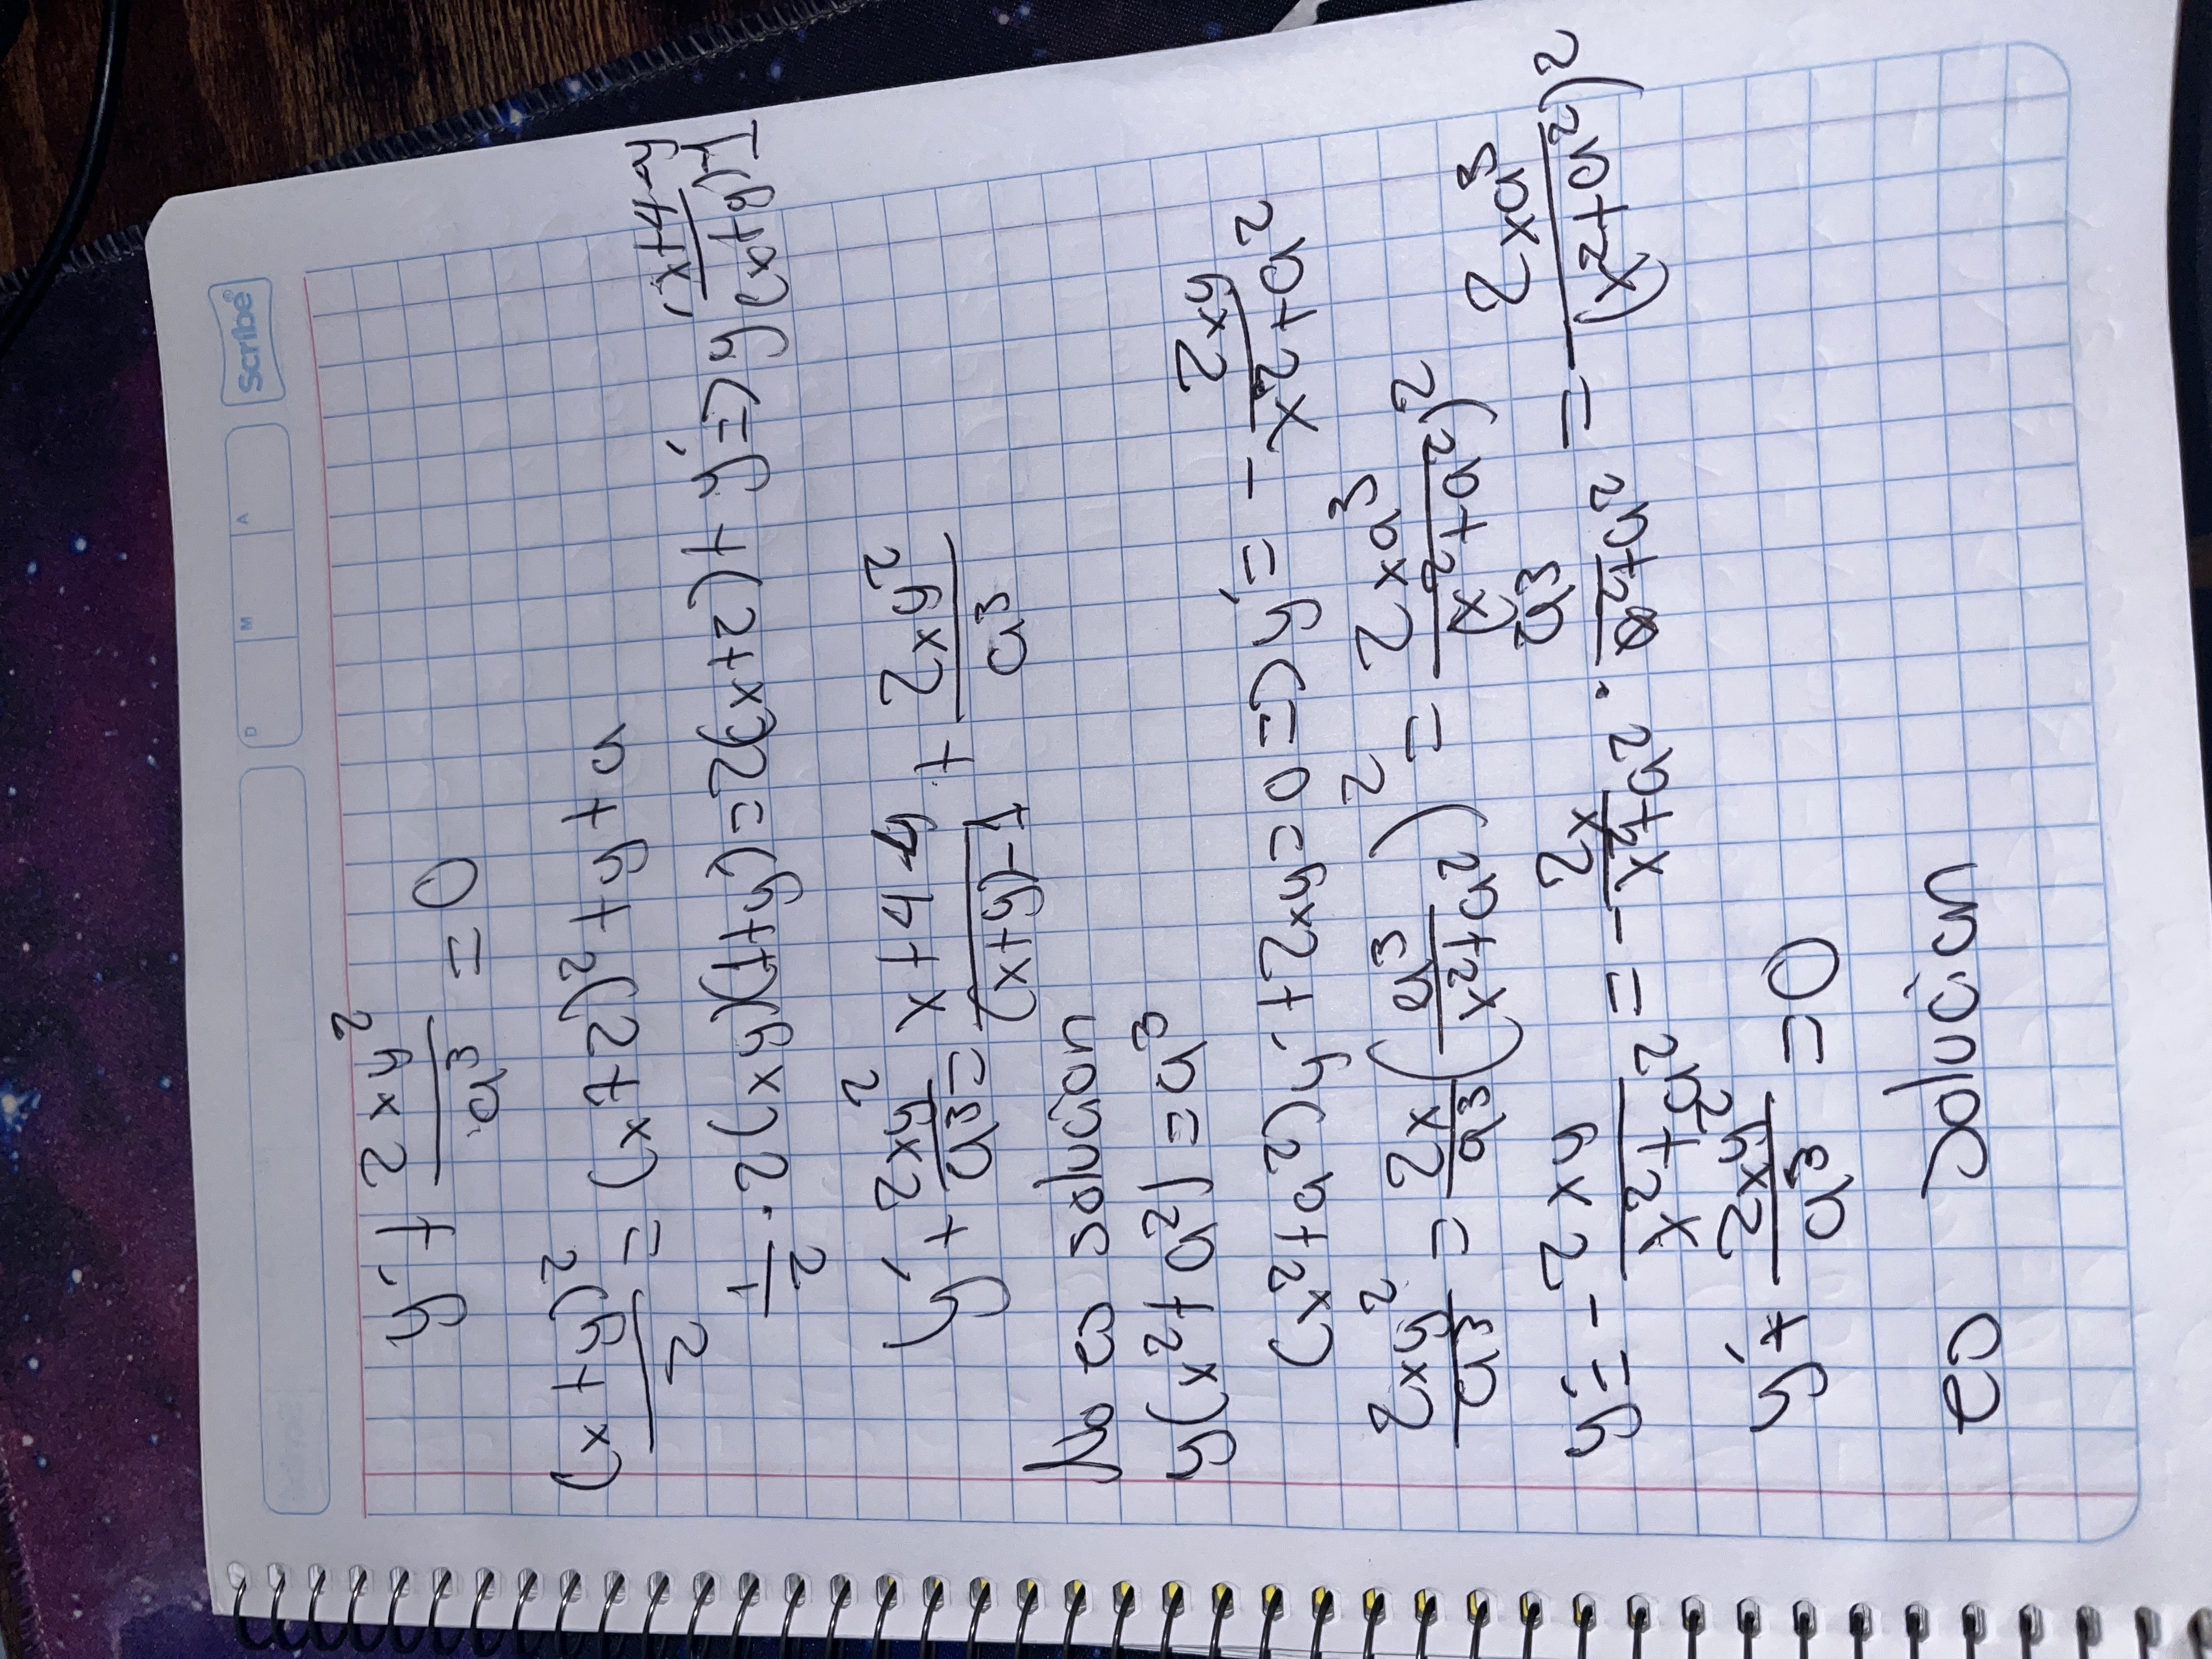 Scribe
D M A
y' + 2xy²/a³ = 0
(x+y)²/2 = (x+2)² + y + a
1/2 · 2(xy)(y+1) = 2(x+2) + y' => y' x+4-y/(y+x)-1
y' + 2xy²/a³ = x+4-y/(x+y)-1 + 2xy²/a³
No es solucion
y(x²+a²) = a³
(x²+a²)y' + 2xy = 0 => y' = - 2xy/x²+a²
2xy²/a³ = 2x/a³ (a³/x²+a²)² = 2xa³/(x²+a²)²
y' = - 2xy/x²+a² = - 2x/x²+a² · a³/x²+a² = 2xa³/(x²+a²)²
y' + 2xy²/a³ = 0
es solucion